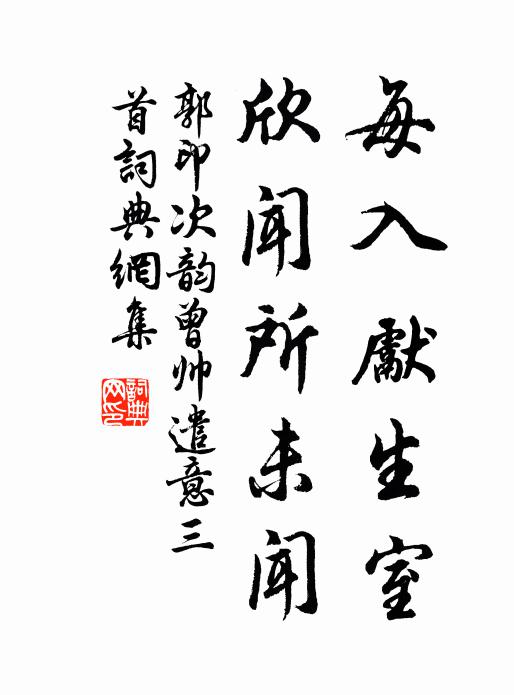 每入獻生室
欣聞所未聞
郭印次韵曾帅遣意三
首詞典網集
詞典网印